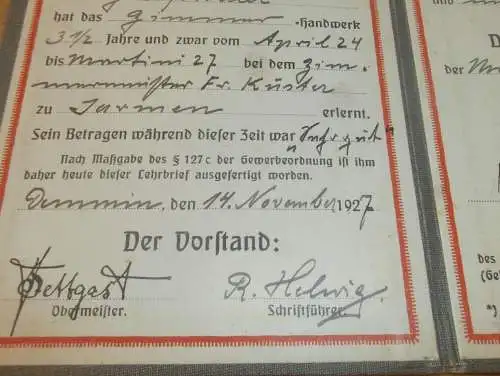 hat das Zimmer-Handwerk
3 1/2 Jahre und zwar vom April 24
bis Martini 27 bei dem Zim-
mermeister Fr. Küster
zu Jarmen erlernt.
Sein Betragen während dieser Zeit war „Sehr gut“
Nach Maßgabe des § 127c der Gewerbeordnung ist ihm
daher heute dieser Lehrbrief ausgefertigt worden.
Demmin, den 14. November 1927
Der Vorstand:
Bettgast R. Helwig.
Obermeister. Schriftführer.
der
des
(Ge
*)